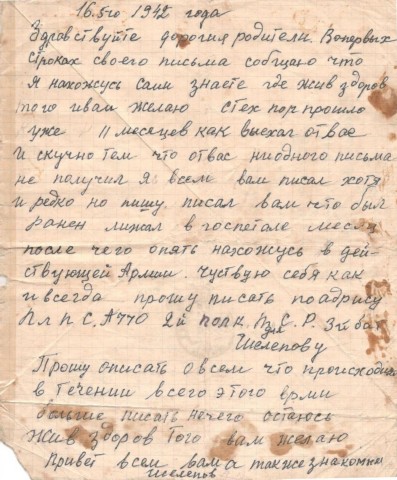 16.5го 1942 года
Здравствуйте дорогия родители. Вопервых
строках своего письма собщаю что
я нахожусь сами знаете где жив здоров
того ивам желаю стех пор прошло
уже 11 месяцев как выехал отвас
и скучно тем что отвас ниодного письма
не получил я всем вам писал хотя
и редко но пишу. писал вам что был
ранен лижал в госпетале месяц
после чего опять нахожусь в дей-
ствующей Армии. Чуствую себя как
и всегда прошу писать поадрису
П.п.С. 2й полк. С.Р. 3й бат
Шелепову
Прошу описать овсем что происходит
в течении всего этого
больше писать нечего остаюсь
жив здоров Того вам желаю
Привет всем вам а также знакомым
Шелепов